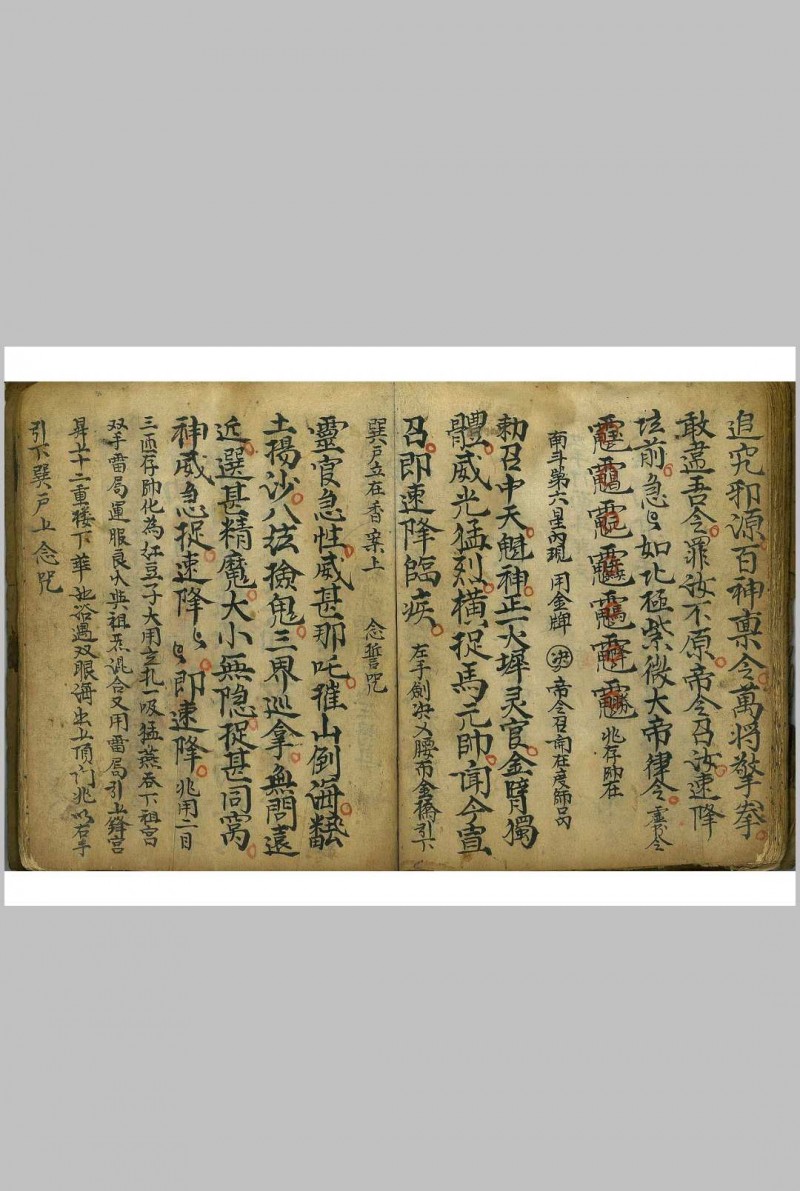 追究邪源百神稟令萬將擎拳
敢違吾令罪汝不原帝令召汝速降
坛前急〻如北極紫微大帝律令
兆存帥在
南斗第六星內現 用金牌 帝令召 在度師
勅召中天魁神正一火犀灵官金臂獨
體威光猛烈橫捉馬元帥聞今宣
召即速降臨疾 左手劍决叉腰布金橋引下
巽户立在香案上 念誓咒
靈官急性威甚那吒摧山倒海
土揚沙八垓撿鬼三界巡拿無問遠
近選甚精魔大小無隐捉甚同窝
神威急捉速降〻〻即速降 兆用二目
三匝存帥化為紅豆子大用 一吸猛燕吞下祖宮
双手雷局運 與祖炁混合又用雷局引上絳宮
昇十二重楼下華池浴過双眼 出上頂门兆以右手
引下巽户上念咒